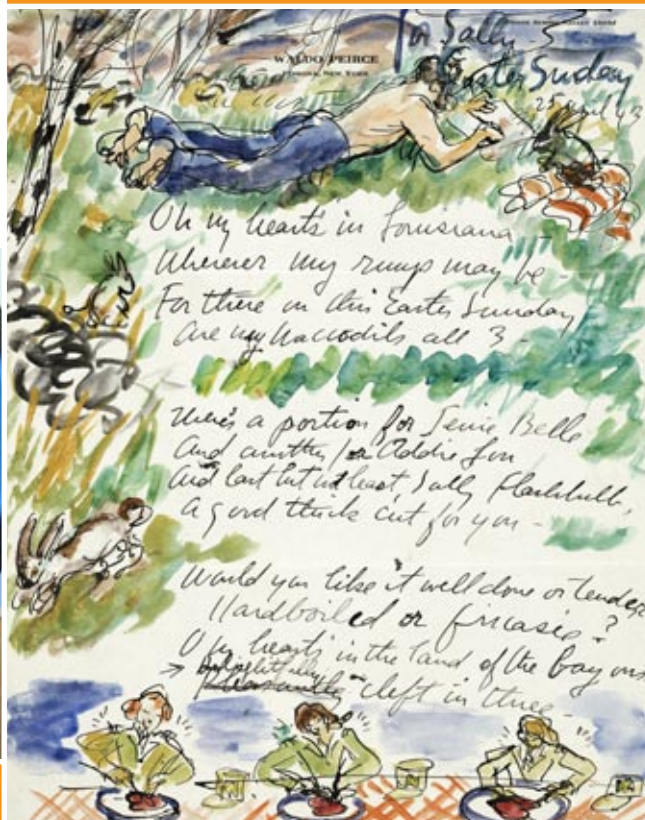 WALDO PEIRCE
POMONA, NEW YORK
for Sally
Easter Sunday
25 April 43
Oh my heart's in Louisiana
Wherever my rump may be -
For there on this Easter Sunday
Are my all 3 -
There's a portion for Belle
And another for Addie Lou
And last but not least, Sally
A good thick cut for you -
Would you like it well done or tender
Hardboiled or fricasie - ?
O my heart's in the land of the bayous
→ delightfully cleft in three -